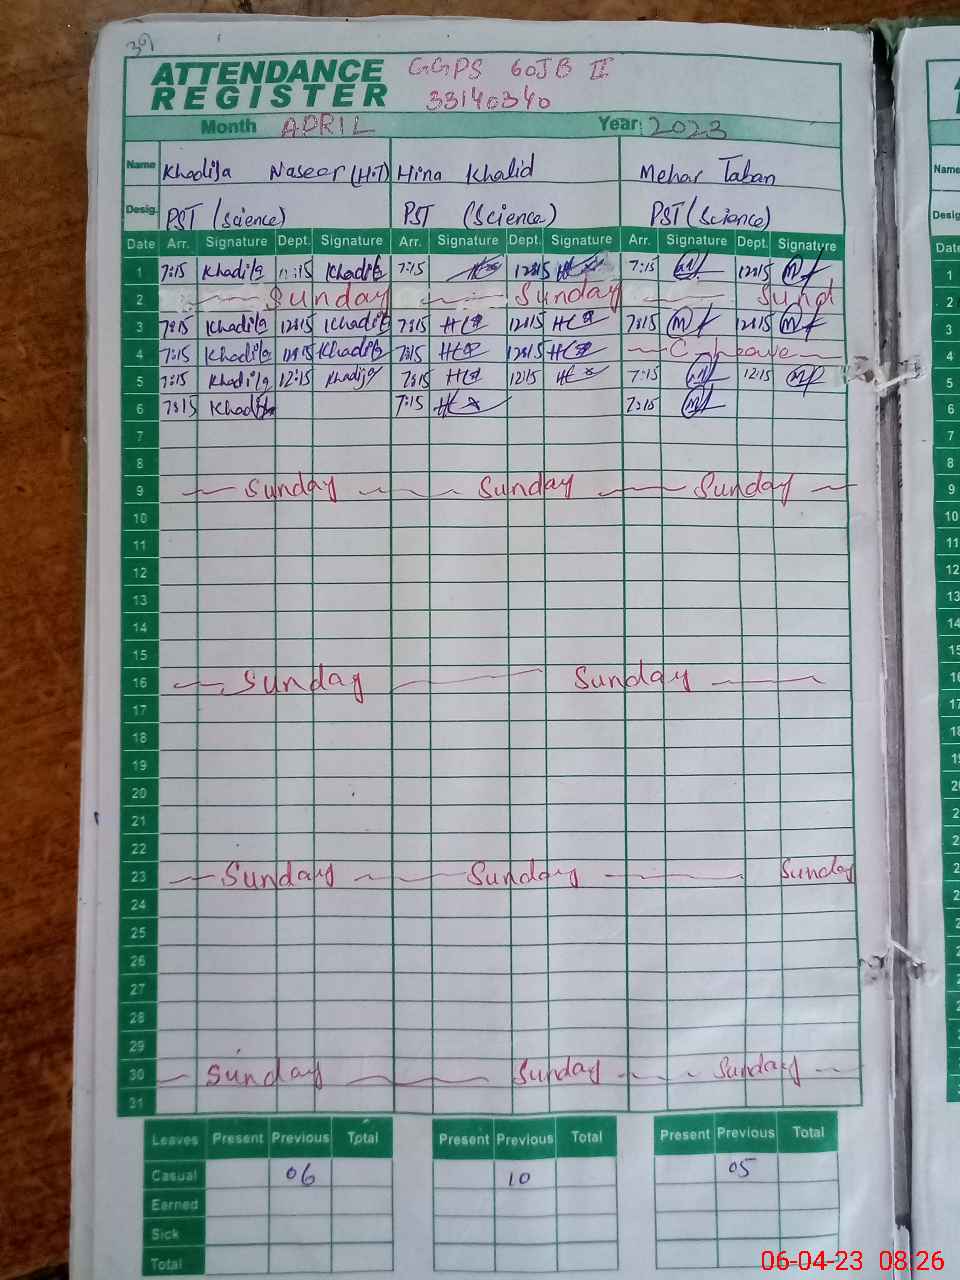 39
ATTENDANCE REGISTER
GGPS 60JB II
33140340
Month APRIL Year: 2023
Name Khadija Naseer (H.T) Hina Khalid Mehar Taban
Desig. PST (Science) PST (Science) PST (Science)
Date Arr. Signature Dept. Signature Arr. Signature Dept. Signature Arr. Signature Dept. Signature
1 7:15 Khadija 12:15 Khadija 7:15 12:15 7:15 12:15
2 Sunday Sunday Sund
3 7:15 Khadija 12:15 Khadija 7:15 12:15 7:15 12:15
4 7:15 Khadija 12:15 Khadija 7:15 12:15 C-leave
5 7:15 Khadija 12:15 Khadija 7:15 12:15 7:15 12:15
6 7:15 Khadija 7:15 7:15
7
8
9 Sunday Sunday Sunday
10
11
12
13
14
15
16 Sunday Sunday
17
18
19
20
21
22
23 Sunday Sunday Sunday
24
25
26
27
28
29
30 Sunday Sunday Sunday
31
Leaves Present Previous Total Present Previous Total Present Previous Total
Casual 06 10 05
Earned
Sick
Total
Name
Desig
Date
1
2
3
4
5
6
7
8
9
10
11
12
13
14
15
16
17
18
06-04-23 08:26